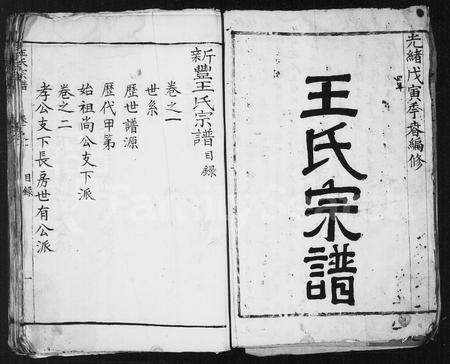 光緒戊寅季春編修
四年
王氏宗譜
新豐王氏宗譜目錄
卷之一
世系
歷世譜源
歷代甲第
始祖尚公支下派
卷之二
孝公支下長房世有公派
目錄
一